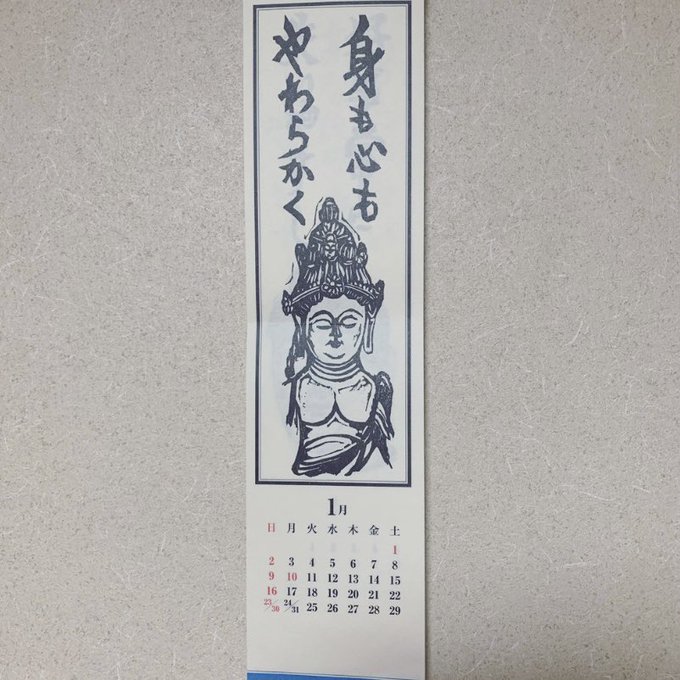 身も心も
やわらかく
1月
日 月 火 水 木 金 土
1
2 3 4 5 6 7 8
9 10 11 12 13 14 15
16 17 18 19 20 21 22
23/30 24/31 25 26 27 28 29